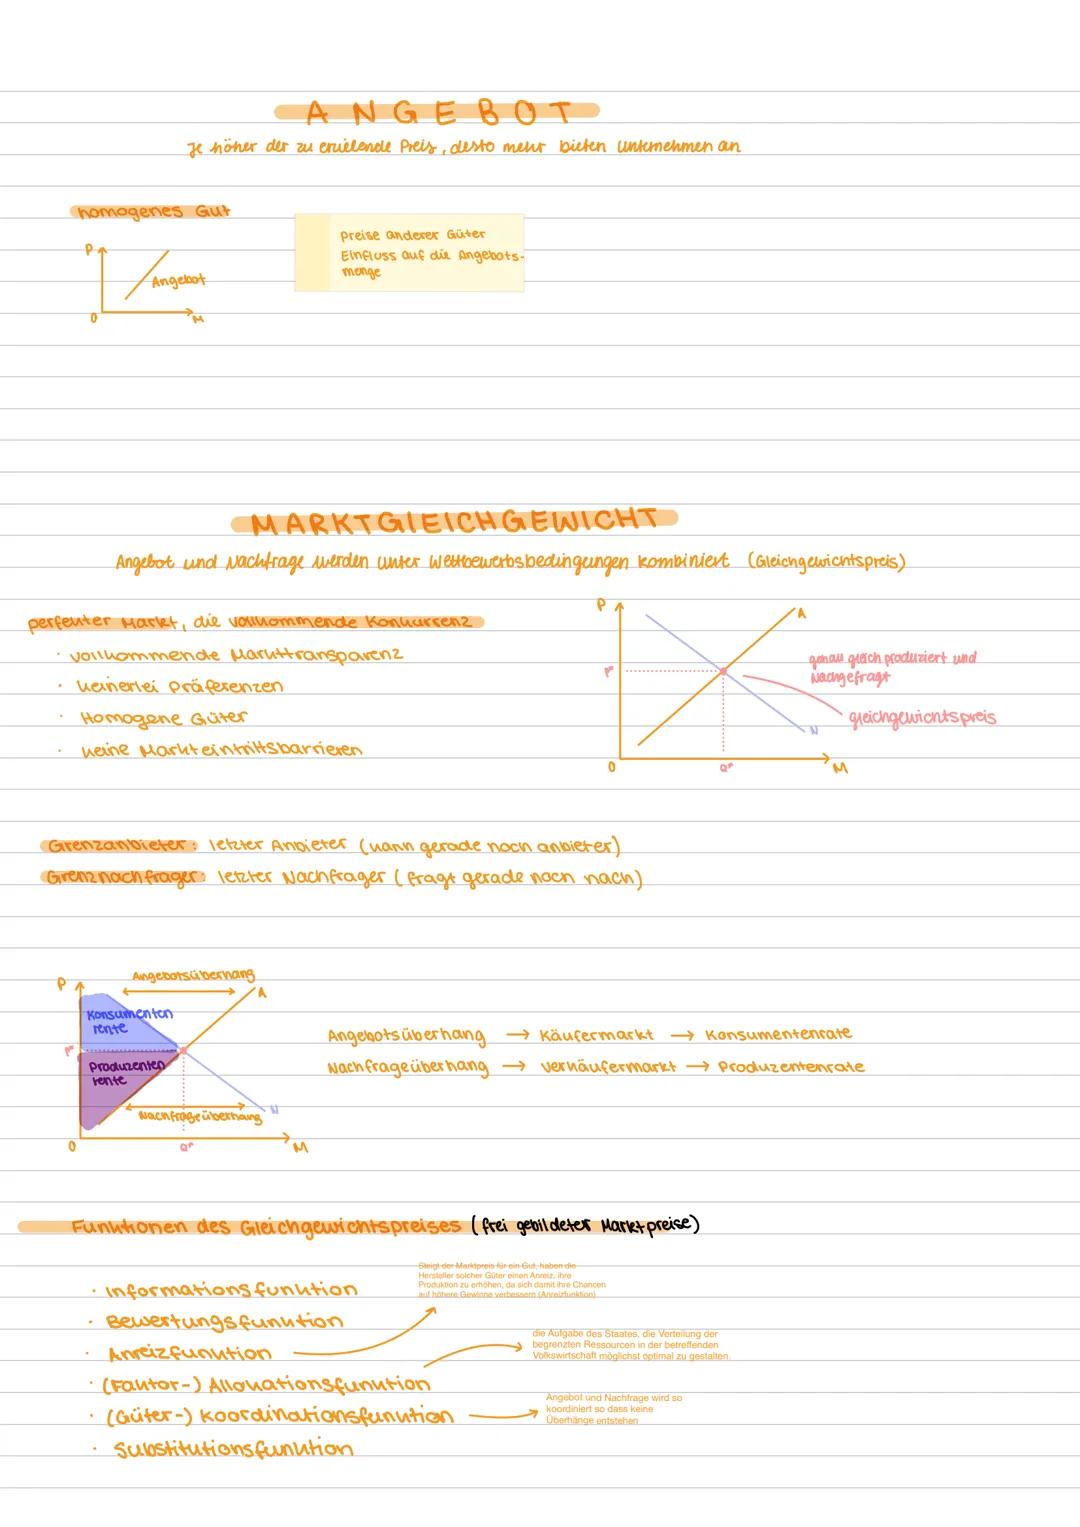 ANGEBOT
Je höher der zu erzielende Preis, desto mehr bieten Unternehmen an
homogenes Gut
P
Angebot
0
M
Preise anderer Güter
Einfluss auf die Angebots-
menge
MARKTGLEICHGEWICHT
Angebot und Nachfrage werden unter Wettbewerbsbedingungen kombiniert (Gleichgewichtspreis)
perfekter Markt, die vollkommende Konkurrenz
· vollkommende Markttransparenz
· keinerlei Präferenzen
· Homogene Güter
· keine Markteintrittsbarrieren
P
A
P*
genau gleich produziert und
Nachgefragt
gleichgewichtspreis
N
0
Q*
M
Grenzanbieter: letzter Anbieter (kann gerade noch anbieter)
Grenznachfrager: letzter Nachfrager (fragt gerade noch nach)
P
Angebotsüberhang
A
Konsumenten
rente
P*
Produzenten
rente
Nachfrageüberhang
N
0
Q*
M
Angebotsüberhang → Käufermarkt → Konsumentenrate
Nachfrageüberhang → Verkäufermarkt → Produzentenrate
Funktionen des Gleichgewichtspreises (frei gebildeter Marktpreise)
Steigt der Marktpreis für ein Gut, haben die
Hersteller solcher Güter einen Anreiz, ihre
Produktion zu erhöhen, da sich damit ihre Chancen
auf höhere Gewinne verbessern (Anreizfunktion)
· Informationsfunktion
· Bewertungsfunktion
· Anreizfunktion
die Aufgabe des Staates, die Verteilung der
begrenzten Ressourcen in der betreffenden
Volkswirtschaft möglichst optimal zu gestalten.
· (Faktor-) Allokationsfunktion
· (Güter-) Koordinationsfunktion
Angebot und Nachfrage wird so
koordiniert so dass keine
Überhänge entstehen
· Substitutionsfunktion